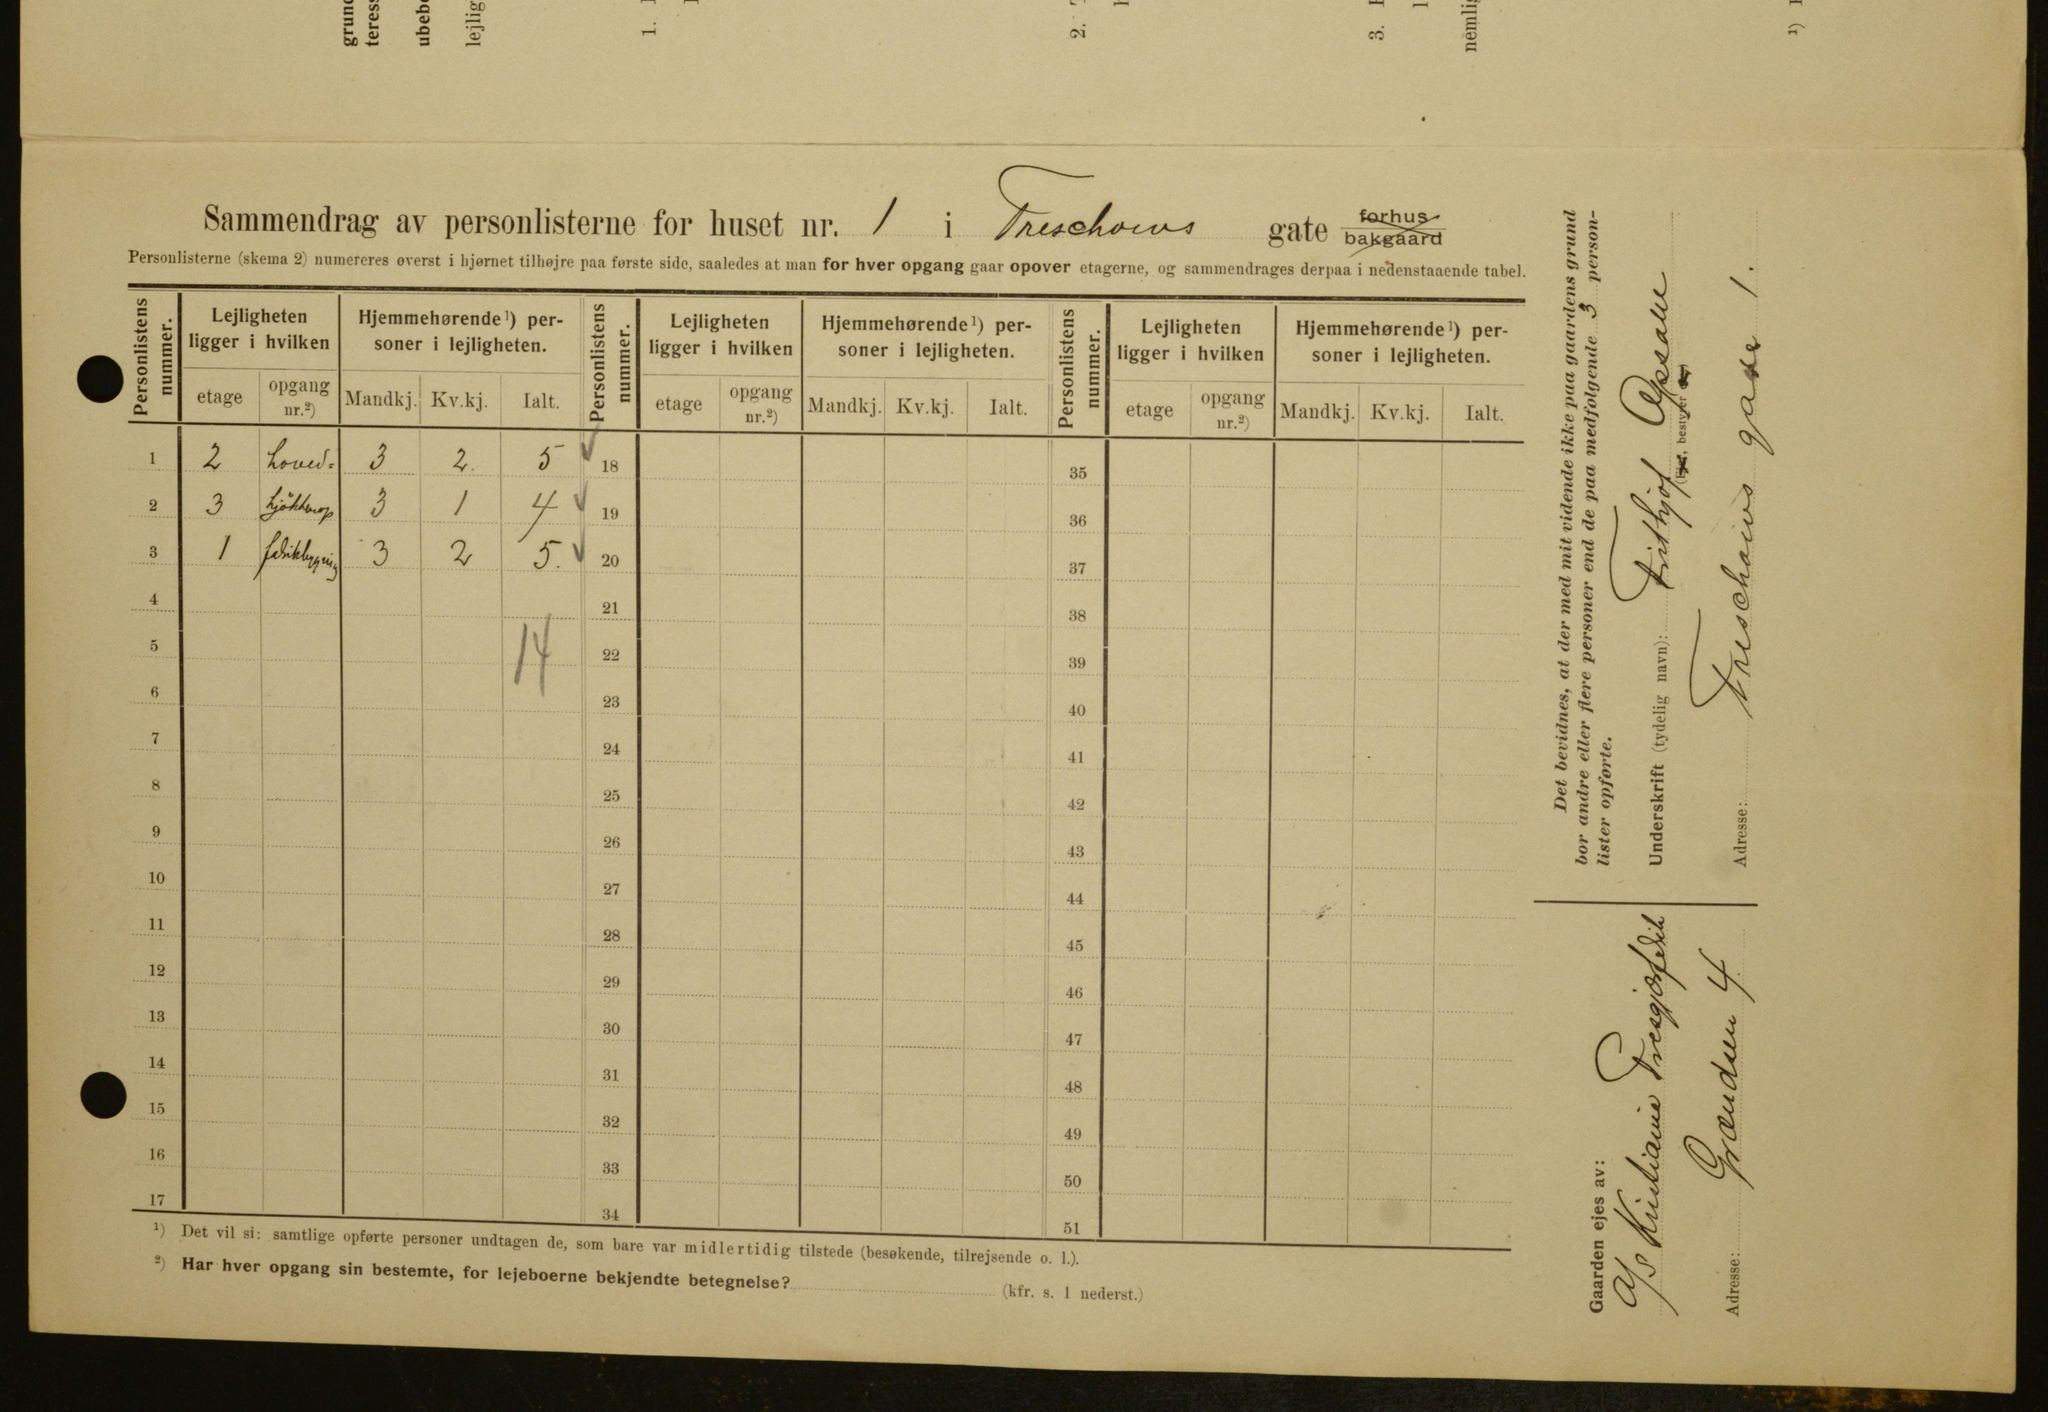 grund
teress
ubebo
lejlig
1.
2.
3.
nemlig
¹)
Sammendrag av personlisterne for huset nr. 1 i Treschows gate forhus
bakgaard
Personlisterne (skema 2) numereres øverst i hjørnet tilhøjre paa første side, saaledes at man for hver opgang gaar opover etagerne, og sammendrages derpaa i nedenstaaende tabel.
Personlistens nummer. Lejligheten ligger i hvilken Hjemmehørende¹) personer i lejligheten. Personlistens nummer. Lejligheten ligger i hvilken Hjemmehørende¹) personer i lejligheten. Personlistens nummer. Lejligheten ligger i hvilken Hjemmehørende¹) personer i lejligheten.
etage opgang nr.²) Mandkj. Kv.kj. Ialt. etage opgang nr.²) Mandkj. Kv.kj. Ialt. etage opgang nr.²) Mandkj. Kv.kj. Ialt.
1 2 hoved= 3 2. 5 18 35
2 3 3 1 4 19 36
3 1 3 2 5. 20 37
4 21 38
5 14 22 39
6 23 40
7 24 41
8 25 42
9 26 43
10 27 44
11 28 45
12 29 46
13 30 47
14 31 48
15 32 49
16 33 50
17 34 51
¹) Det vil si: samtlige opførte personer undtagen de, som bare var midlertidig tilstede (besøkende, tilrejsende o. l.).
²) Har hver opgang sin bestemte, for lejeboerne bekjendte betegnelse? (kfr. s. 1 nederst.)
Det bevidnes, at der med mit vidende ikke paa gaardens grund
bor andre eller flere personer end de paa medfølgende 3 person-
lister opførte.
Underskrift (tydelig navn): Frithjof
bestyrer
Adresse: Treschows gade 1.
Gaarden ejes av:
A/S Kristiania
Adresse: Grændsen 4